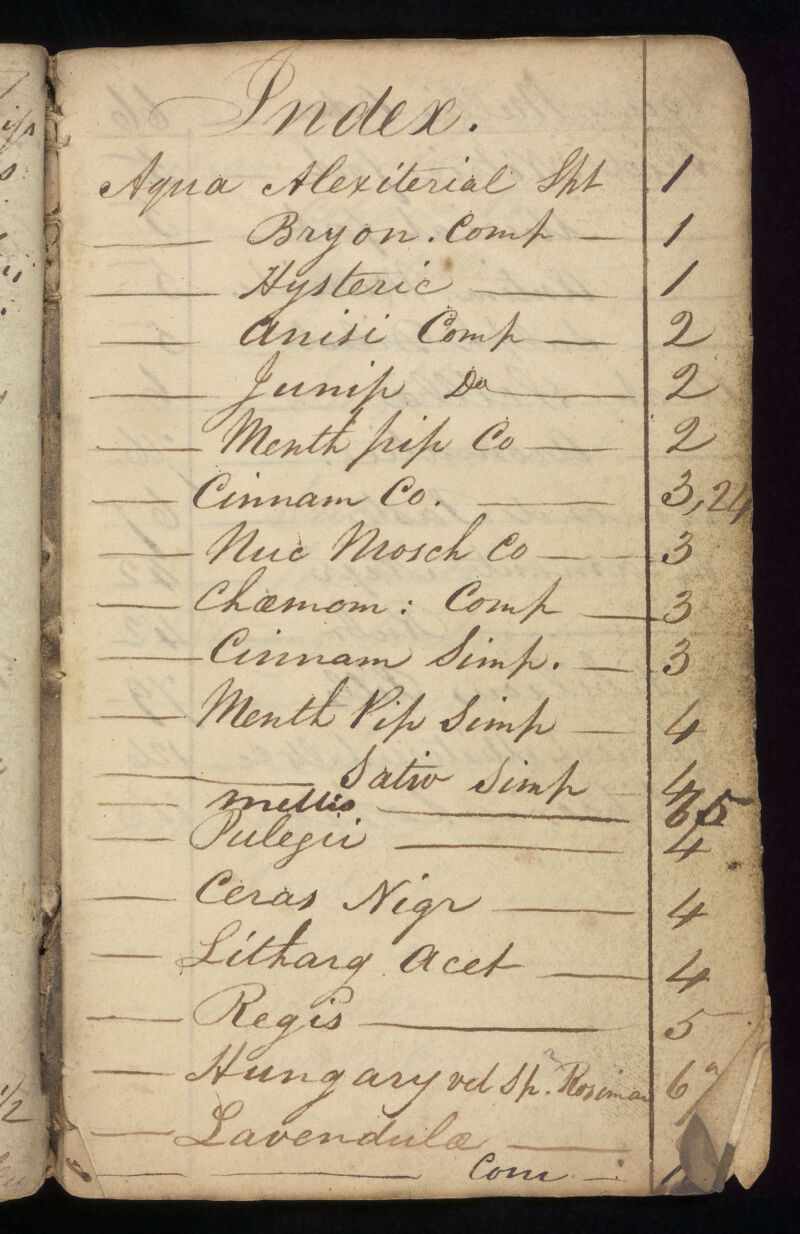 Index.
Aqua Alexiterial Spt 1
—— Bryon. Comp — 1
—— Hysteric —— 1
—— Anisi Comp — 2
—— Junip Do —— 2
—— Menth pip Co — 2
—— Cinnam Co. —— 3, 24
—— Nuc Mosch Co —— 3
—— Chæmom: Comp — 3
—— Cinnam Simp. — 3
—— Menth Pip Simp — 4
—— Sativ Simp 4
—— Mellis —— 65
—— Pulegii —— 4
—— Ceras Nigr —— 4
—— Litharg Acet —— 4
—— Regis —— 5
—— Hungary vel Sp. Rosimar 6
—— Lavendulæ ——
—— —— Com —